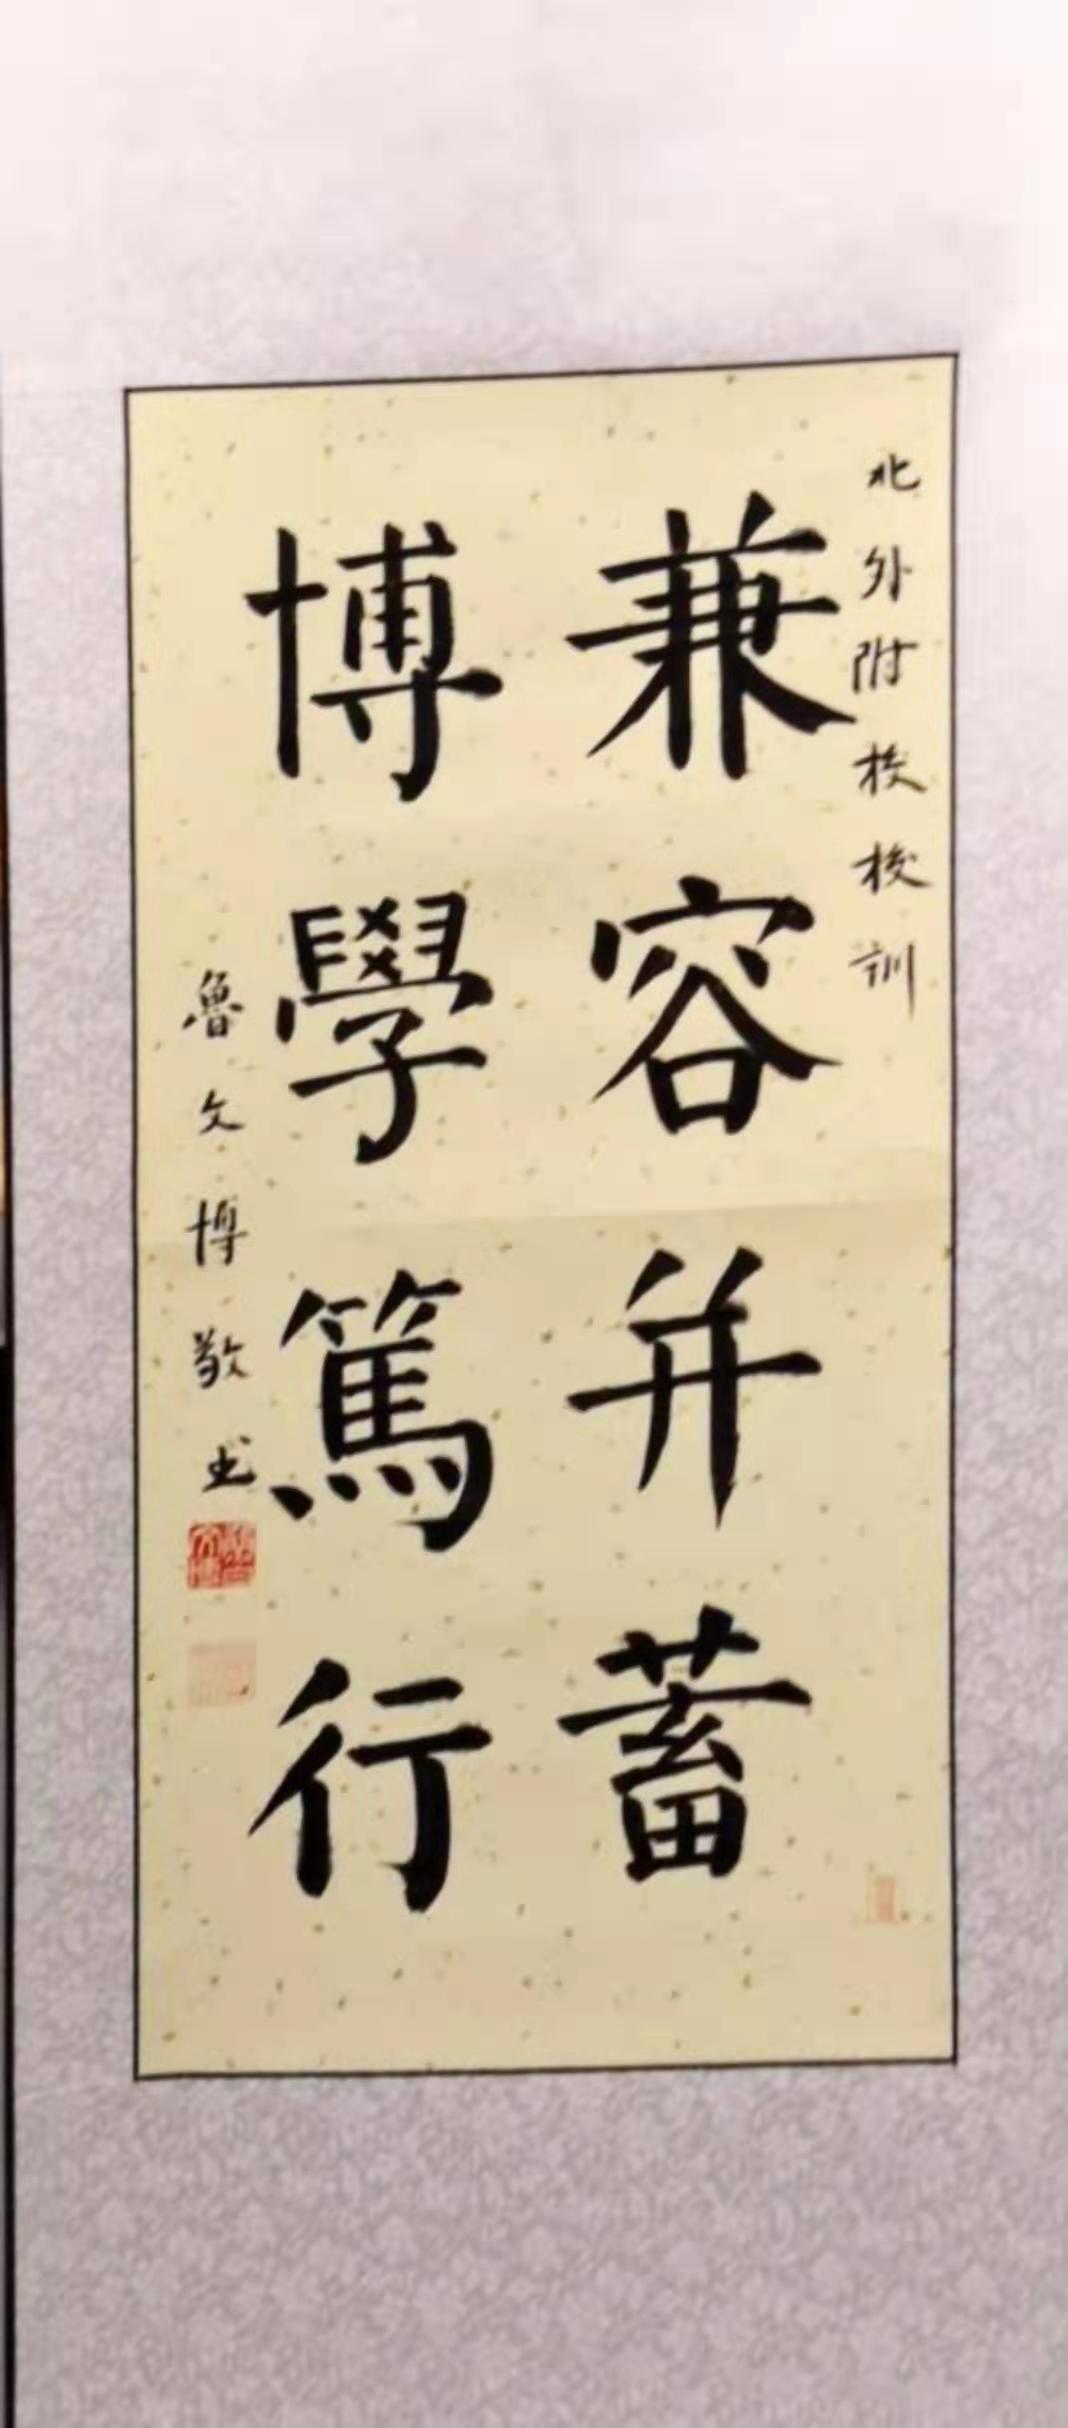 北外附校校訓
兼容并蓄
博學篤行
魯文博敬书